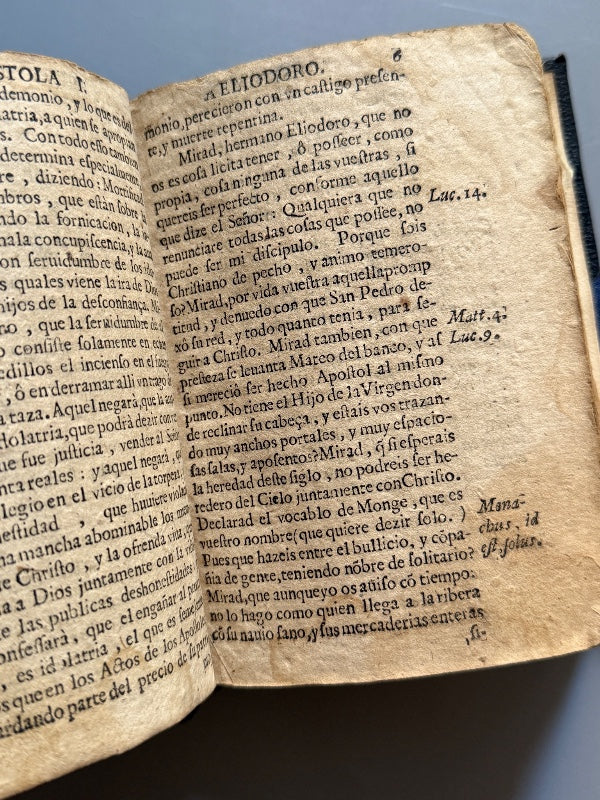 STOLA I.
demonio, y lo que es del
latria, a quien se apropian
s. Con todo esso tambien
determina especialmente
re, diziendo: Mortificad
mbros, que estàn sobre la
ndo la fornicacion, la
mala concupiscencia, y la
on seruidumbre de los
s quales viene la ira de Dios
hijos de la desconfiança.
no, que la seruidumbre
o consiste solamente en
edillos el incienso en el fuego
, ò en derramar alli vn trago
a taza. Aquel negarà, que la
dolatria, que podrà dezir
ue fue justicia, vender al Señor
nta reales: y aquel negarà, que
legio en el vicio de la torpeza
nestidad, que huuiere
na mancha abominable los
e Christo, y la ofrenda viua
a a Dios juntamente con la
e las publicas deshonestidades
onfessarà, que el engañar al
, es idolatria, el que es
os que en los Actos de los Apostoles
ardando parte del precio de su
A ELIODORO. 6
monio, perecieron con vn castigo presen-
te, y muerte repentina.
Mirad, hermano Eliodoro, que no
os es cosa licita tener, ò posseer, como
propia, cosa ninguna de las vuestras, si
quereis ser perfecto, conforme aquello
que dize el Señor: Qualquiera que no
renunciare todas las cosas que possee, no
puede ser mi discipulo. Porque sois
Christiano de pecho, y animo temero-
so? Mirad, por vida vuestra aquella promp
titud, y denuedo con que San Pedro de-
xò su red, y todo quanto tenia, para se-
guir a Christo. Mirad tambien, con que
presteza se leuanta Mateo del banco, y asi
si mereciò ser hecho Apostol al mismo
punto. No tiene el Hijo de la Virgen don-
de reclinar su cabeça, y estais vos trazan-
do muy anchos portales, y muy espacio-
sas salas, y aposentos? Mirad, q̃ si esperais
la heredad deste siglo, no podreis ser he-
redero del Cielo juntamente con Christo.
Declarad el vocablo de Monge, que es
vuestro nombre (que quiere dezir solo.)
Pues que hazeis entre el bullicio, y cõpa-
ñia de gente, teniendo nõbre de solitario?
Mirad, que aunque yo os auiso cõ tiempo:
no lo hago como quien llega a la ribera
cõ su nauio sano, y sus mercaderias enteras
, si-
Luc. 14.
Matt. 4.
Luc. 9.
Mona-
chus, id
est solus.